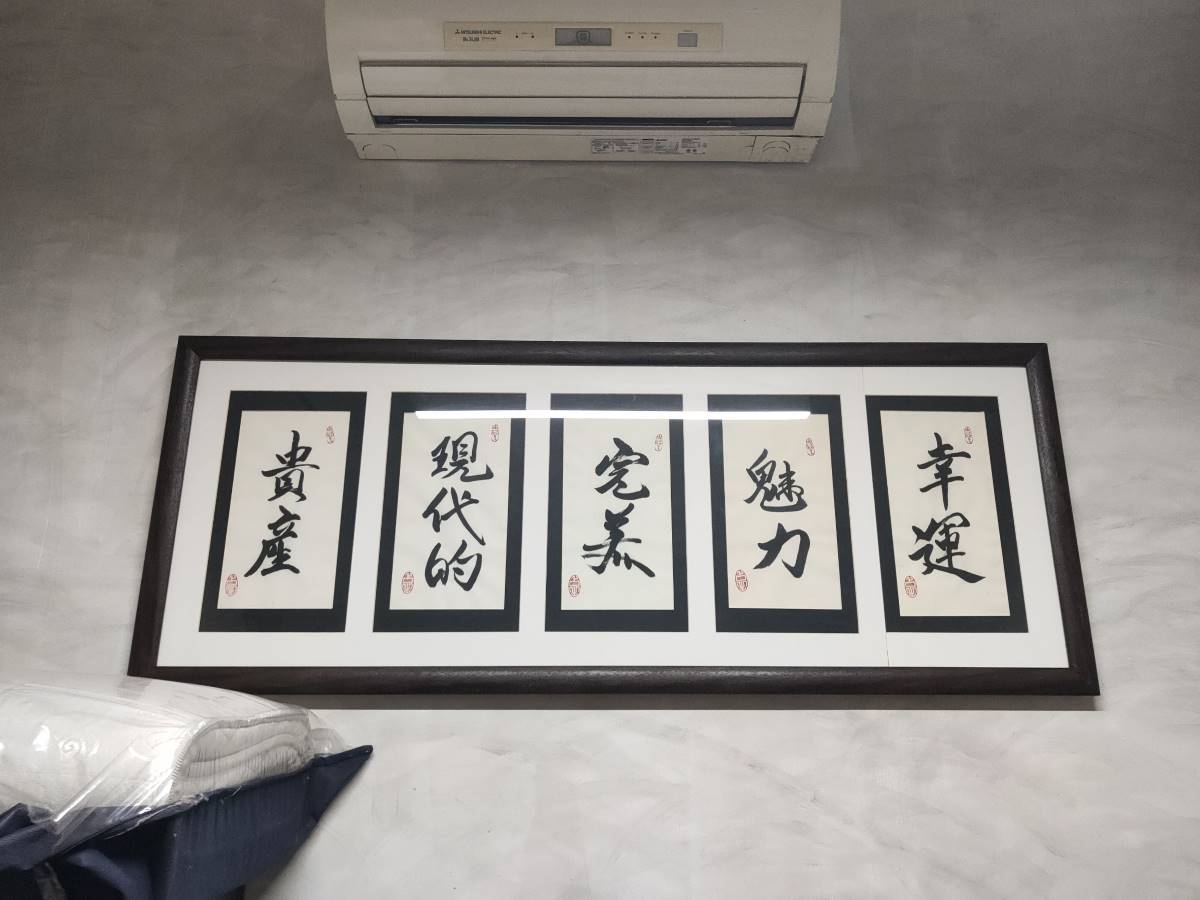 MITSUBISHI ELECTRIC
Mr.SLIM
貴產
現代的
完美
魅力
幸運